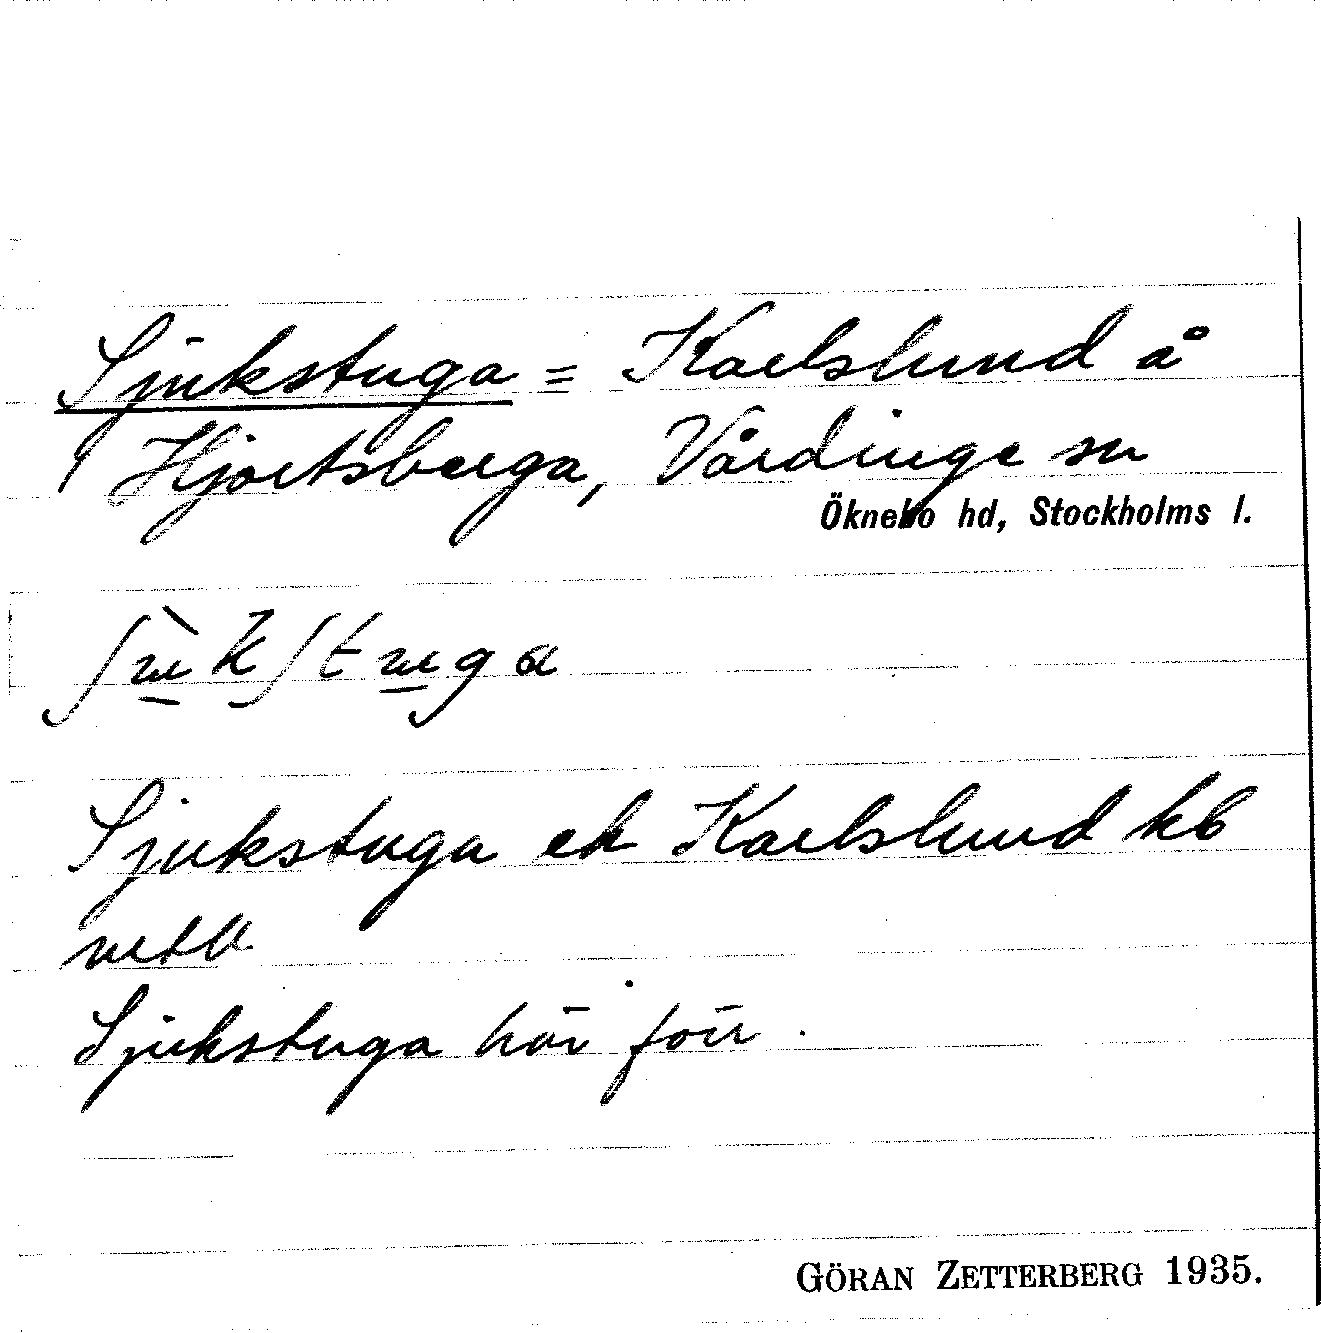 Sjukstuga = Karlslund å
Hjortsberga, Vårdinge sn
Öknebo hd, Stockholms l.
Sjukstuga ek Karlslund kb
Sjukstuga här förr.
GÖRAN ZETTERBERG 1935.